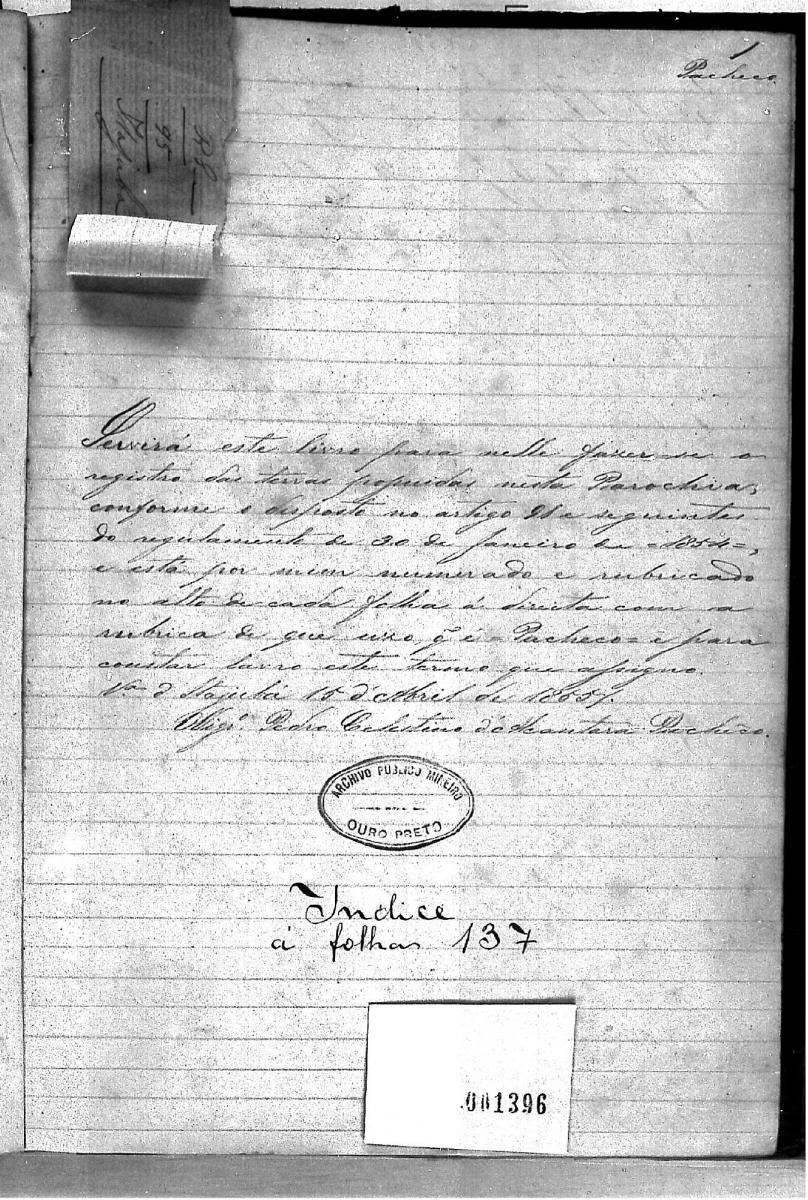 1
Pacheco
95
Servirá este livro para nelle fazer-se o
registro das terras possuidas nesta Parochia,
conforme o disposto no artigo 91 e seguintes
do regulamento de 30 de Janeiro de =1854=,
e está por mim numerado e rubricado
no alto de cada folha á direita com a
rubrica de que uzo, q̃ é =Pacheco= e para
constar lavro este termo que assigno.
Vª d'Itajubá 15 d'Abril de 1855.
Vigrº. Pedro Celestino d'Alcantara Pacheco.
ARCHIVO PUBLICO MINEIRO
OURO PRETO
Indice
á folhas 137
001396